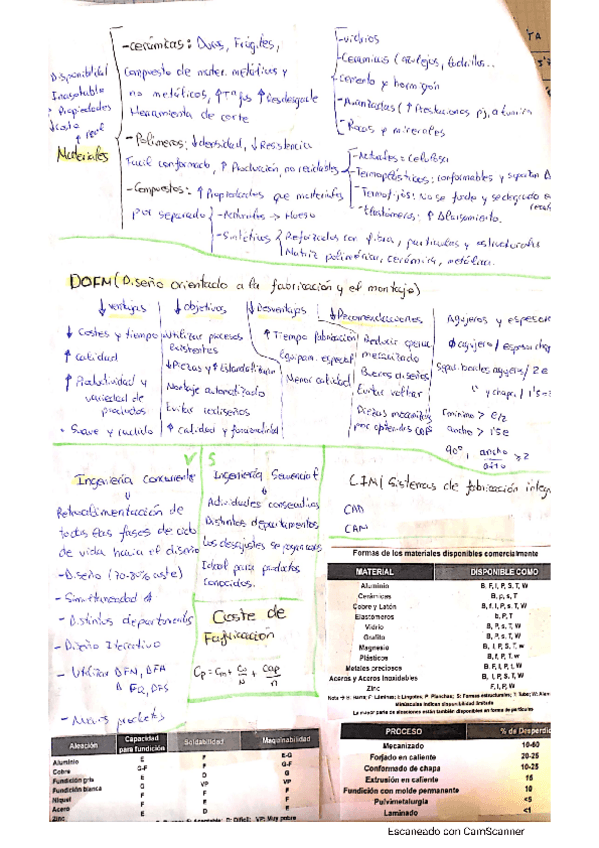 -Cerámicas: Duras, Frágiles,
Compuesto de mater. metálicos y
no metálicos, ↑Tª fus ↑Resdesgaste
Herramienta de corte
-vidrios
-Cerámicas (azulejos, ladrillos..
cemento y hormigón
-Avanzadas (↑Prestaciones pj, alumina
-Rocas y minerales
Disponibilidad
Inagotable
Propiedades
↓Costo
Materiales
-Polímeros: ↓densidad, ↓Resistencia
Facil conformado, ↑Producción, no reciclables
-Naturales: celulosa
-Termoplásticos: conformables y
-Termofijos: No se funde y se degrada
-Elastómeros: ↑Alargamiento.
-Compuestos: ↑Propiedades que materiales
por separado
-Naturales → Hueso
-Sintéticos
Reforzados con fibra, partículas y estructurales
Matriz polimérica, cerámica, metálica.
DOFM (Diseño orientado a la fabricación y el montaje)
↓ventajas
↓Costes y tiempo
↑Calidad
↑Productividad y
variedad de
productos
Suave y
↓objetivos
Utilizar procesos
existentes
↓Piezas y ↑Estandarizar
Montaje automatizado
Evitar rediseños
↑calidad y funcionalidad
↓Desventajas
↑Tiempo fabricación
Equipam. especial
Menor calidad
↓Recomendaciones
Reducir opera
mecanizado
Buenos diseños
Evitar voltear
Piezas
por
Agujeros y espesor
Φagujero/espesor
agujeros/2e
y chapa/1'5e
rmínimo > e/2
ancho > 1'5e
90º, ancho/alto ≥ 2
V S
Ingeniería Concurrente
Retroalimentación de
todas las fases de ciclo
de vida hacia el diseño
-Diseño (70-80% coste)
-Simultaneidad
-Distintos departamentos
-Diseño Iterativo
- Utilizar DFM, DFA
-Nuevos productos
Ingeniería Secuencial
Actividades consecutivas
Distintos departamentos
Los desajustes se
Ideal para productos
conocidos.
Coste de
Fabricación
Cp = Cm + Co/N + Cap/n
CIM (Sistemas de fabricación integ
CAD
CAM
Formas de los materiales disponibles comercialmente
MATERIAL DISPONIBLE COMO
Aluminio B, F, I, P, S, T, W
Cerámicas B, p, s, T
Cobre y Latón B, f, I, P, s, T, W
Elastómeros b, P, T
Vidrio B, P, s, T, W
Grafito B, P, s, T, W
Magnesio B, I, P, S, T, w
Plásticos B, f, P, T, w
Metales preciosos B, F, I, P, t, W
Aceros y Aceros Inoxidables B, I, P, S, T, W
Zinc F, I, P, W
Nota → B: Barra; F: Láminas; I: Lingotes; P: Planchas; S: Formas estructurales; T: Tubo; W: Alam
minúsculas indican disponibilidad limitada
La mayor parte de aleaciones están también disponibles en forma de partículas
Aleación Capacidad para fundición Soldabilidad Maquinabilidad
Aluminio E F E-G
Cobre G-F F G-F
Fundición gris E D G
Fundición blanca G VP VP
Níquel F F F
Acero F E F
Zinc E D E
D: Difícil; VP: Muy pobre
PROCESO % de Desperdic
Mecanizado 10-60
Forjado en caliente 20-25
Conformado de chapa 10-25
Extrusión en caliente 15
Fundición con molde permanente 10
Pulvimetalurgia <5
Laminado <1
Escaneado con CamScanner